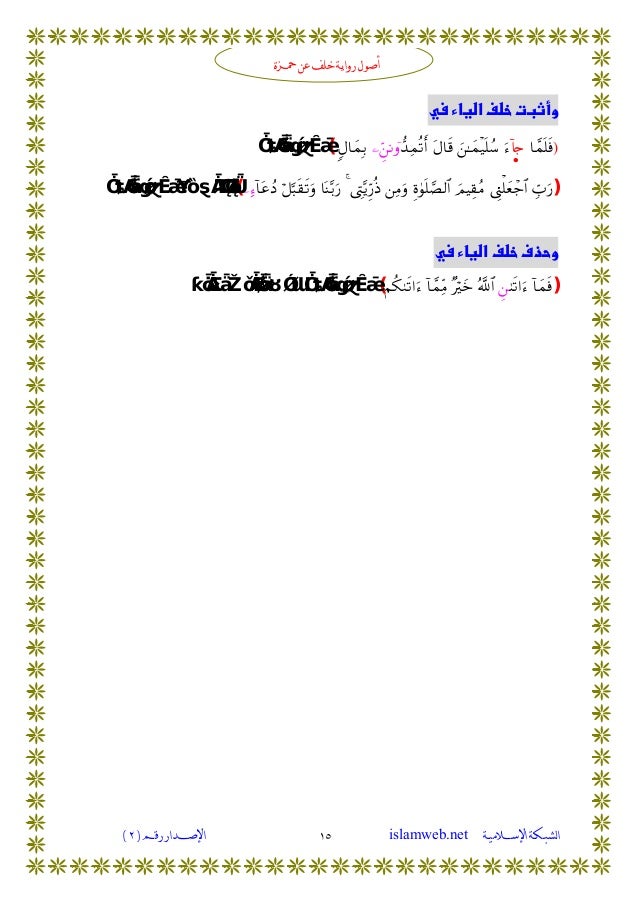 أصول رواية خلف عن حمزة
وأثبت خلف الياء في
(فَلَمَّا جَآءَ سُلَيْمَٰنَ قَالَ أَتُمِدُّونَنِۦ بِمَالٍ)
(رَبِّ ٱجْعَلْنِى مُقِيمَ ٱلصَّلَوٰةِ وَمِن ذُرِّيَّتِى ۚ رَبَّنَا وَتَقَبَّلْ دُعَآءِ)
وحذف خلف الياء في
(فَمَآ ءَاتَىٰنِ ٱللَّهُ خَيْرٌ مِّمَّآ ءَاتَىٰكُم)
الشبكة الإسلامية islamweb.net ١٥ الإصدار رقم (٢)